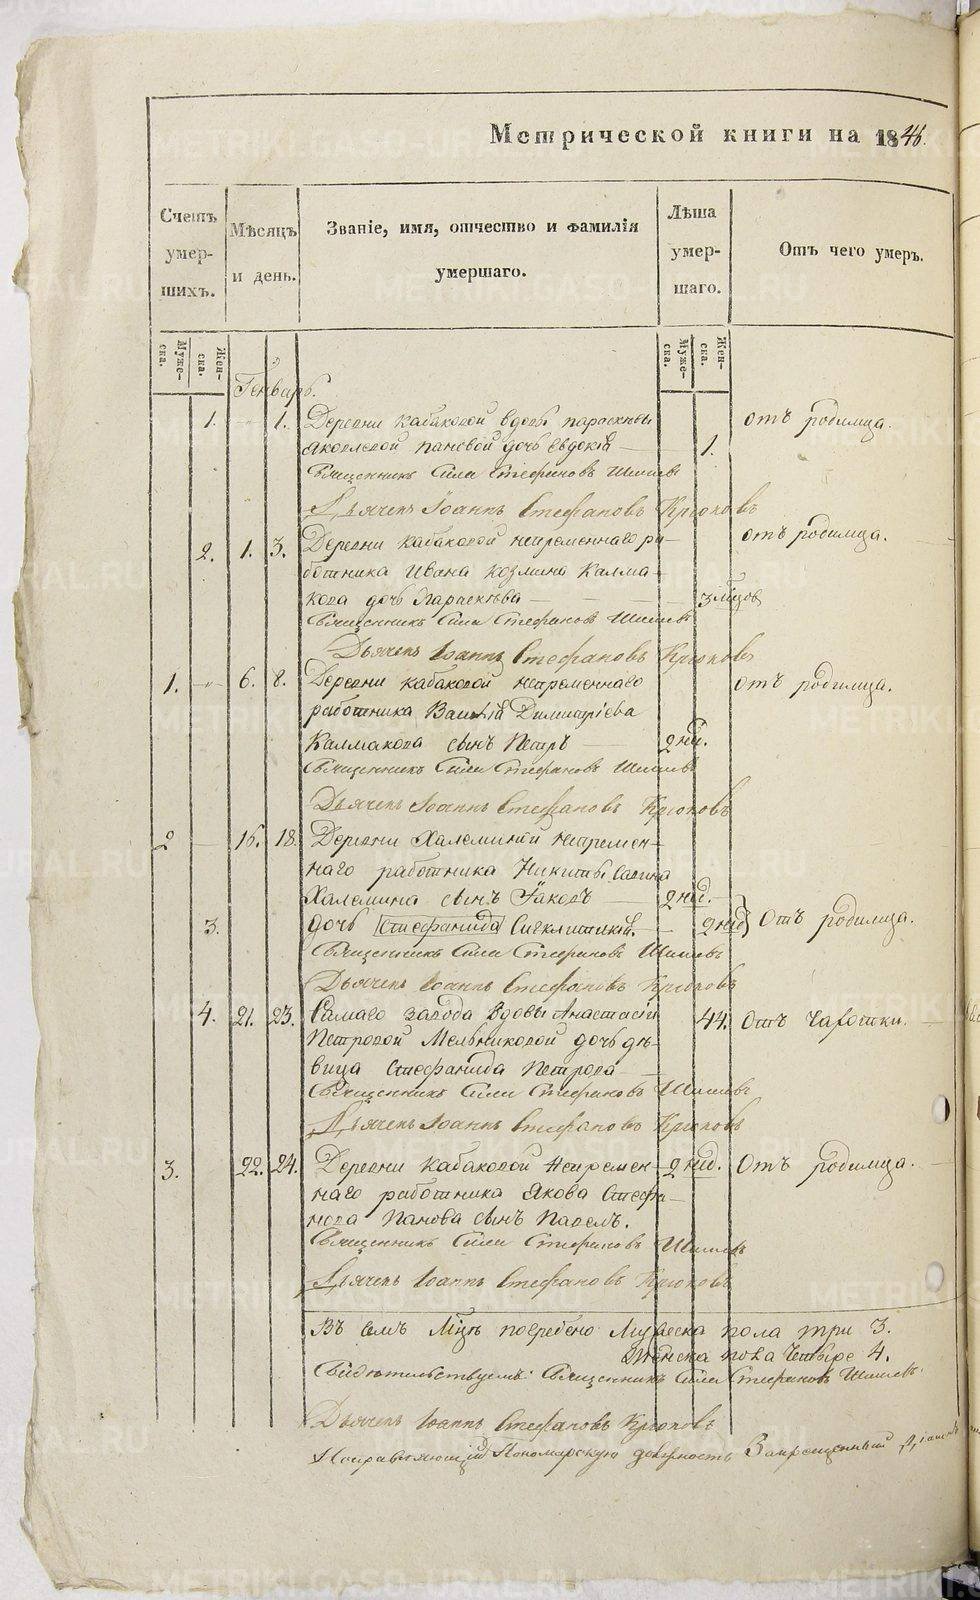 Метрической книги на 1846.
Счетъ умер- шихъ.
Мѣсяцъ и день.
Званіе, имя, отчество и фамилія умершаго.
Лѣта умер- шаго.
Отъ чего умеръ.
Муже- ска.
Жен- ска.
Муже- ска.
Жен- ска.
Генварь.
1. 1. Деревни Кабаковой вдовы Параскевы отъ родимца.
Яковлевой Пановой дочь Евдокія 1.
Священникъ Сила Стефановъ
Дьячекъ Іоаннъ Стефановъ Крюковъ
2. 1. 3. Деревни Кабаковой непременнаго ра- отъ родимца.
ботника Ивана Козмина Калма-
кова дочь Параскева 3 мцов
Священникъ Сила Стефановъ
Дьячекъ Іоаннъ Стефановъ Крюковъ
1. 6. 8. Деревни Кабаковой непременнаго отъ родимца.
работника Василія Димитріева
Калмакова сынъ Петръ 2 нед.
Священникъ Сила Стефановъ
Дьячекъ Іоаннъ Стефановъ Крюковъ
2 16. 18. Деревни Халеминой непремен-
наго работника Никиты Савина
Халемина сынъ Іаковъ 2 нед.
3. дочь Стефанида Сигклитикія. 2 нед Отъ родимца.
Священникъ Сила Стефановъ
Дьячекъ Іоаннъ Стефановъ Крюковъ
4. 21. 23. Самаго завода вдовы Анастасіи 44. Отъ чахотки.
Петровой Мельниковой дочь дѣ-
вица Стефанида Петрова
Священникъ Сила Стефановъ
Дьячекъ Іоаннъ Стефановъ Крюковъ
3. 22. 24. Деревни Кабаковой непремен- 2 нед. Отъ родимца.
наго работника Якова Стефа-
нова Панова сынъ Павелъ.
Священникъ Сила Стефановъ
Дьячекъ Іоаннъ Стефановъ Крюковъ
Въ семъ мцѣ погребено Мужеска пола три 3.
Женска пола четыре 4.
Свидѣтельствуемъ: Священникъ Сила Стефановъ
Дьячекъ Іоаннъ Стефановъ Крюковъ
Исправляющій Пономарскую должность Запрещенный